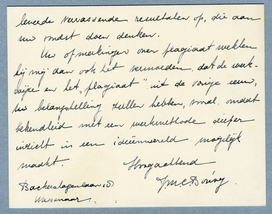 leverde verrassende resultaten op, die aan
uw vondst doen denken.
Uw opmerkingen over plagiaat wekken
bij mij dan ook het vermoeden, dat de werk-
wijze en het „plagiaat" uit de vorige eeuw,
uw belangstelling zullen hebben, omdat
bekendheid met een werkmethode dieper
inzicht in een ideeënwereld mogelijk
maakt.
Hoogachtend
Backershagenlaan
Wassenaar.